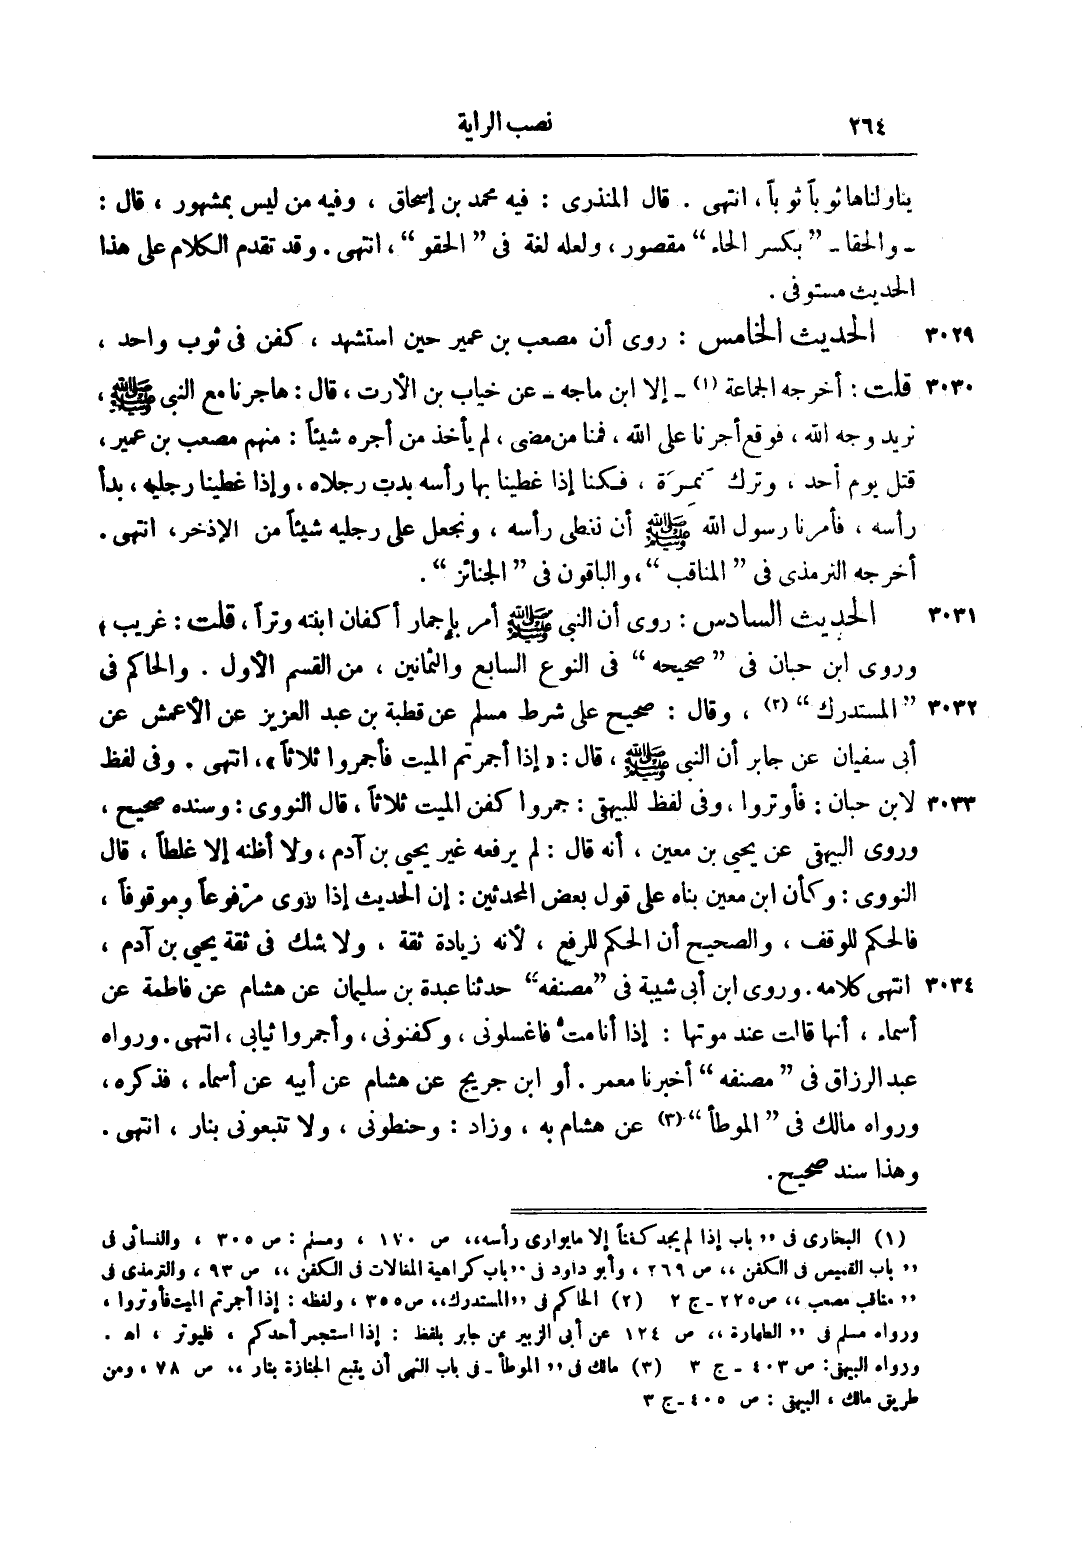 ٢٦٤ نصب الراية
يناولناها ثوباً ثوباً ، انتهى . قال المنذرى : فيه محمد بن إسحاق ، وفيه من ليس بمشهور ، قال :
ـ والحقا ـ " بكسر الحاء " مقصور ، ولعله لغة فى " الحقو " ، انتهى . وقد تقدم الكلام على هذا
الحديث مستوفى .
٣٠٢٩ الحديث الخامس : روى أن مصعب بن عمير حين استشهد ، كفن فى ثوب واحد ،
٣٠٣٠ قلت : أخرجه الجماعة (١) ـ إلا ابن ماجه ـ عن خباب بن الأرت ، قال : هاجرنا مع النبي ﷺ ،
نريد وجه الله ، فوقع أجرنا على الله ، فمنا من مضى ، لم يأخذ من أجره شيئاً : منهم مصعب بن عمير ،
قتل يوم أحد ، وترك نَمِرَة ، فكنا إذا غطينا بها رأسه بدت رجلاه ، وإذا غطينا رجليه ، بدأ
رأسه ، فأمرنا رسول الله ﷺ أن نغطى رأسه ، ونجعل على رجليه شيئاً من الإذخر ، انتهى .
أخرجه الترمذى فى " المناقب " ، والباقون فى " الجنائز " .
٣٠٣١ الحديث السادس : روى أن النبي ﷺ أمر بإجمار أكفان ابنته وتراً ، قلت : غريب ؛
وروى ابن حبان فى " صحيحه " فى النوع السابع والثمانين ، من القسم الأول . والحاكم فى
٣٠٣٢ " المستدرك " (٢) ، وقال : صحيح على شرط مسلم عن قطبة بن عبد العزيز عن الأعمش عن
أبى سفيان عن جابر أن النبي ﷺ ، قال : « إذا أجمرتم الميت فأجمروا ثلاثاً » ، انتهى . وفى لفظ
٣٠٣٣ لابن حبان : فأوتروا ، وفى لفظ للبيهقى : جمروا كفن الميت ثلاثاً ، قال النووى : وسنده صحيح ،
وروى البيهقى عن يحيى بن معين ، أنه قال : لم يرفعه غير يحيى بن آدم ، ولا أظنه إلا غلطاً ، قال
النووى : وكأن ابن معين بناه على قول بعض المحدثين : إن الحديث إذا روى مرفوعاً وموقوفاً ،
فالحكم للوقف ، والصحيح أن الحكم للرفع ، لأنه زيادة ثقة ، ولا شك فى ثقة يحيى بن آدم ،
٣٠٣٤ انتهى كلامه . وروى ابن أبى شيبة فى " مصنفه " حدثنا عبدة بن سليمان عن هشام عن فاطمة عن
أسماء ، أنها قالت عند موتها : إذا أنا مت فاغسلونى ، وكفنونى ، وأجمروا ثيابى ، انتهى . ورواه
عبد الرزاق فى " مصنفه " أخبرنا معمر . أو ابن جريج عن هشام عن أبيه عن أسماء ، فذكره ،
ورواه مالك فى " الموطأ " (٣) عن هشام به ، وزاد : وحنطونى ، ولا تتبعونى بنار ، انتهى .
وهذا سند صحيح .
(١) البخارى فى ,, باب إذا لم يجد كفناً إلا مايوارى رأسه ،، ص ١٧٠ ، ومسلم : ص ٣٠٥ ، والنسائى فى
,, باب القميص فى الكفن ،، ص ٢٦٩ ، وأبو داود فى ,, باب كراهية المغالات فى الكفن ،، ص ٩٣ ، والترمذى فى
,, مناقب مصعب ،، ص ٢٢٥ ـ ج ٢ (٢) الحاكم فى ,, المستدرك ،، ص ٣٥٥ ، ولفظه : إذا أجمرتم الميت فأوتروا ،
ورواه مسلم فى ,, الطهارة ،، ص ١٢٤ عن أبى الزبير عن جابر بلفظ : إذا استجمر أحدكم ، فليوتر ، اهـ .
ورواه البيهقى : ص ٤٠٣ ـ ج ٣ (٣) مالك فى ,, الموطأ ـ فى باب النهى أن يتبع الجنازة بنار ،، ص ٧٨ ، ومن
طريق مالك ، البيهقى : ص ٤٠٥ ـ ج ٣